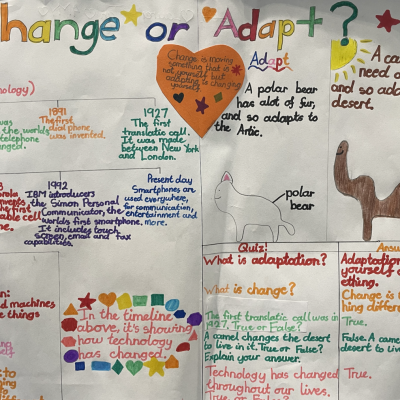 hange or Adapt?
Change is moving
something that is
not yourself but
adapting is changing
yourself.
Adapt
A polar bear
has alot of fur,
and so adapts to
the Artic.
polar
bear
A ca
need
and so ada
desert.
nology)
1891
The first
dial phone
was invented.
1927
The first
translatic call.
It was made
between New York
and London.
was
the worlds
telephone
nged.
1992
IBM introducers
the Simon Personal
Communicator, the
worlds first smartphone.
It includes touch
screen, email and fax
capabilities.
Present day
Smartphones are
used everywhere,
for communication,
entertainment and
more.
rola
nvents
the first
able cell
ne.
d machines
e things
In the timeline
above, it's showing
how technology
has changed.
Quiz!
What is adaptation?
What is change?
The first translatic call was in
1927. True or False?
A camel changes the desert
to live in it. True or False?
Explain your answer.
Technology has changed
throughout our lives.
True or False?
Answ
Adaptatio
yourself
ething.
Change is
hing differen
True.
False. A came
desert to live
True.